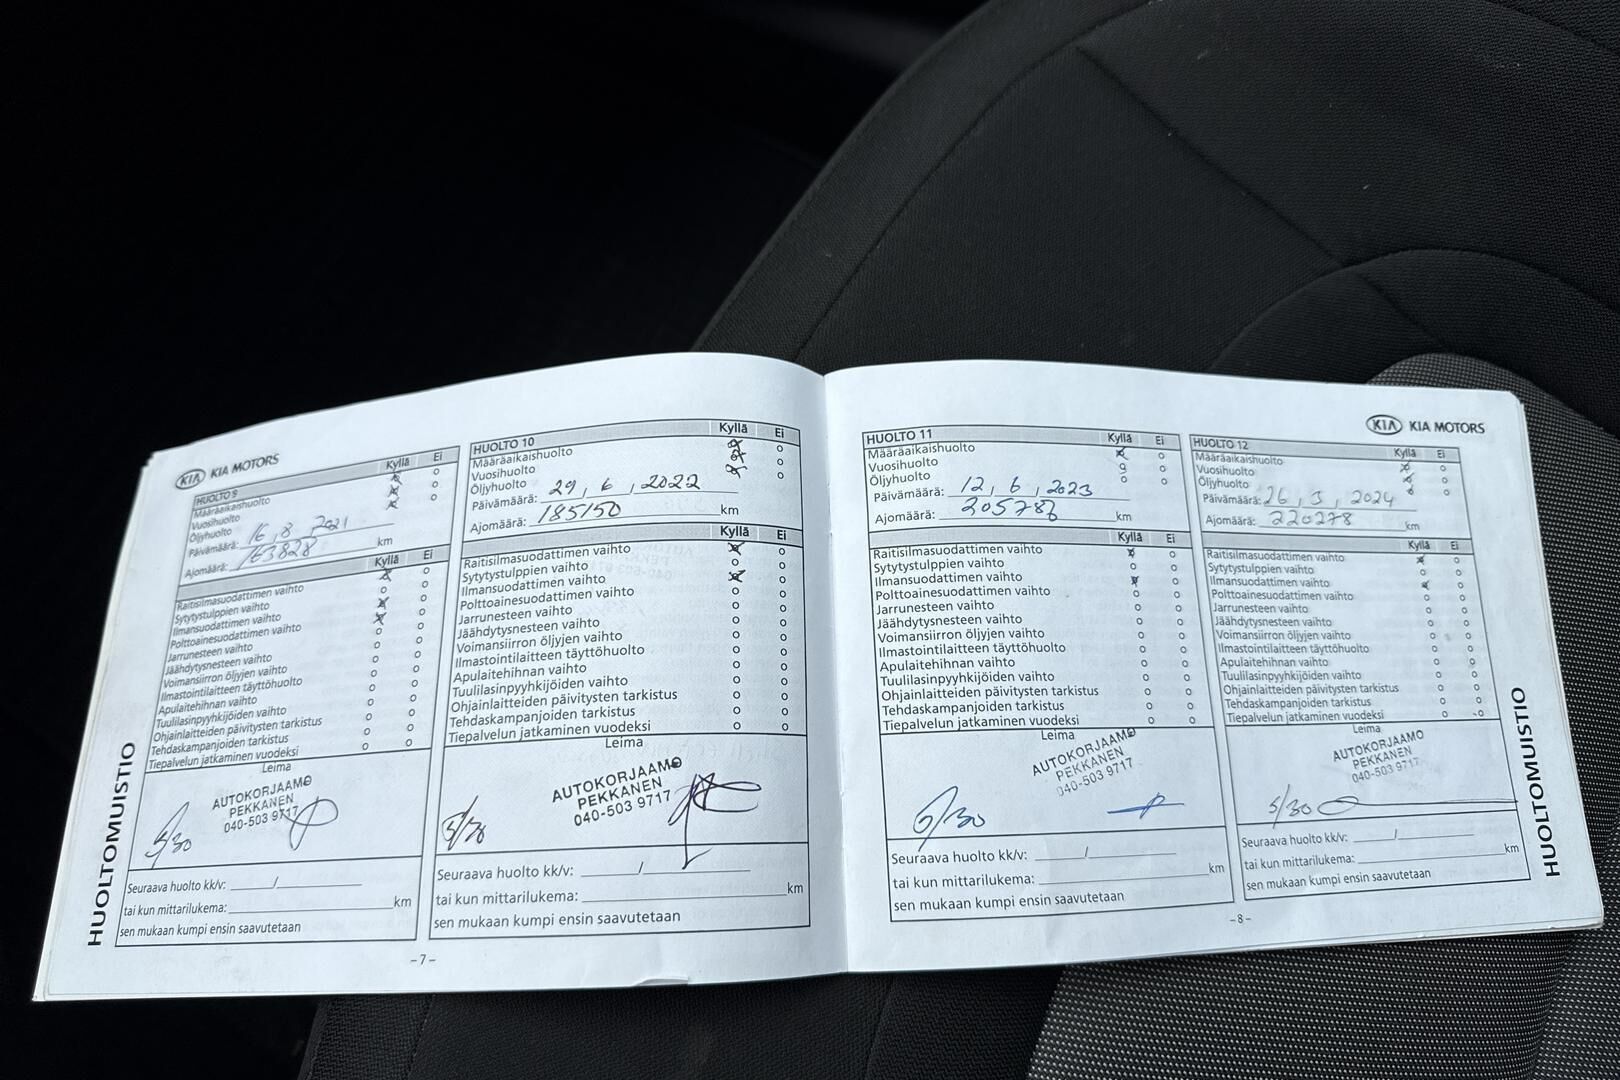 HUOLTOMUISTIO
KIA KIA MOTORS
HUOLTO 9
Kyllä Ei
Määräaikaishuolto
Vuosihuolto
Öljyhuolto
Päivämäärä: 16, 8, 2021
Ajomäärä: 163828 km
Kyllä Ei
Raitisilmasuodattimen vaihto
Sytytystulppien vaihto
Ilmansuodattimen vaihto
Polttoainesuodattimen vaihto
Jarrunesteen vaihto
Jäähdytysnesteen vaihto
Voimansiirron öljyjen vaihto
Ilmastointilaitteen täyttöhuolto
Apulaitehihnan vaihto
Tuulilasinpyyhkijöiden vaihto
Ohjainlaitteiden päivitysten tarkistus
Tehdaskampanjoiden tarkistus
Tiepalvelun jatkaminen vuodeksi
Leima
AUTOKORJAAMO
PEKKANEN
040-503 9717
5/30
Seuraava huolto kk/v: /
tai kun mittarilukema: km
sen mukaan kumpi ensin saavutetaan
HUOLTO 10
Kyllä Ei
Määräaikaishuolto
Vuosihuolto
Öljyhuolto
Päivämäärä: 29, 6, 2022
Ajomäärä: 185150 km
Kyllä Ei
Raitisilmasuodattimen vaihto
Sytytystulppien vaihto
Ilmansuodattimen vaihto
Polttoainesuodattimen vaihto
Jarrunesteen vaihto
Jäähdytysnesteen vaihto
Voimansiirron öljyjen vaihto
Ilmastointilaitteen täyttöhuolto
Apulaitehihnan vaihto
Tuulilasinpyyhkijöiden vaihto
Ohjainlaitteiden päivitysten tarkistus
Tehdaskampanjoiden tarkistus
Tiepalvelun jatkaminen vuodeksi
Leima
AUTOKORJAAMO
PEKKANEN
040-503 9717
Seuraava huolto kk/v: /
tai kun mittarilukema: km
sen mukaan kumpi ensin saavutetaan
-7-
KIA KIA MOTORS
HUOLTO 11
Kyllä Ei
Määräaikaishuolto
Vuosihuolto
Öljyhuolto
Päivämäärä: 12, 6, 2023
Ajomäärä: 205786 km
Kyllä Ei
Raitisilmasuodattimen vaihto
Sytytystulppien vaihto
Ilmansuodattimen vaihto
Polttoainesuodattimen vaihto
Jarrunesteen vaihto
Jäähdytysnesteen vaihto
Voimansiirron öljyjen vaihto
Ilmastointilaitteen täyttöhuolto
Apulaitehihnan vaihto
Tuulilasinpyyhkijöiden vaihto
Ohjainlaitteiden päivitysten tarkistus
Tehdaskampanjoiden tarkistus
Tiepalvelun jatkaminen vuodeksi
Leima
AUTOKORJAAMO
PEKKANEN
040-503 9717
Seuraava huolto kk/v: /
tai kun mittarilukema: km
sen mukaan kumpi ensin saavutetaan
HUOLTO 12
Kyllä Ei
Määräaikaishuolto
Vuosihuolto
Öljyhuolto
Päivämäärä: 26, 3, 2024
Ajomäärä: 220278 km
Kyllä Ei
Raitisilmasuodattimen vaihto
Sytytystulppien vaihto
Ilmansuodattimen vaihto
Polttoainesuodattimen vaihto
Jarrunesteen vaihto
Jäähdytysnesteen vaihto
Voimansiirron öljyjen vaihto
Ilmastointilaitteen täyttöhuolto
Apulaitehihnan vaihto
Tuulilasinpyyhkijöiden vaihto
Ohjainlaitteiden päivitysten tarkistus
Tehdaskampanjoiden tarkistus
Tiepalvelun jatkaminen vuodeksi
Leima
AUTOKORJAAMO
PEKKANEN
040-503 9717
5/30
Seuraava huolto kk/v: /
tai kun mittarilukema: km
sen mukaan kumpi ensin saavutetaan
-8-
HUOLTOMUISTIO